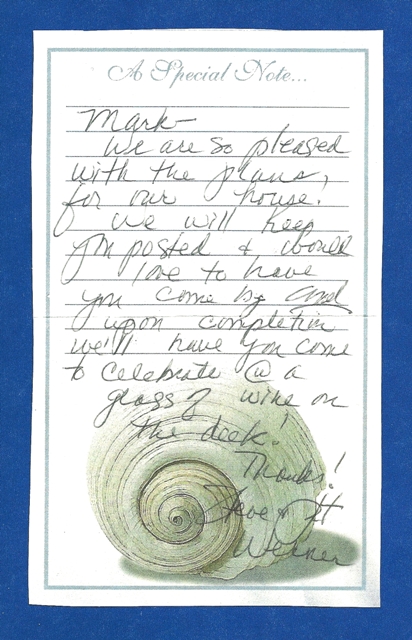 A Special Note...
Mark-
We are so pleased
with the plans,
for our house.
We will keep
you posted & would
love to have
you come by and
upon completion
we'll have you come
to celebrate @ a
glass of wine on
the deck!
Thanks!
Steve &
Werner